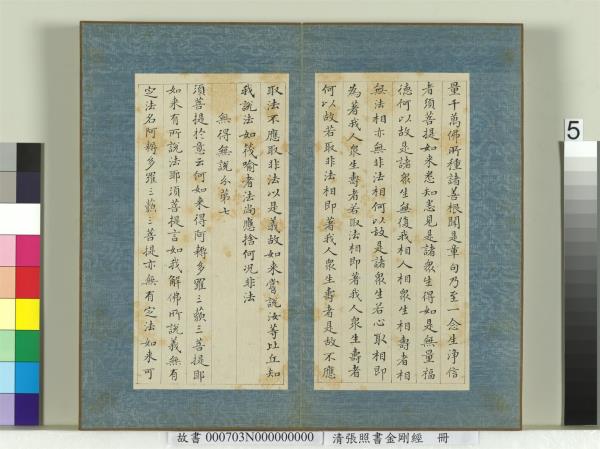 量千萬佛所種諸善根聞是章句乃至一念生淨信
者須菩提如來悉知悉見是諸眾生得如是無量福
德何以故是諸眾生無復我相人相眾生相壽者相
無法相亦無非法相何以故是諸眾生若心取相即
為著我人眾生壽者若取法相即著我人眾生壽者
何以故若取非法相即著我人眾生壽者是故不應
取法不應取非法以是義故如來常說汝等比丘知
我說法如筏喻者法尚應捨何況非法
無得無說分第七
須菩提於意云何如來得阿耨多羅三藐三菩提耶
如來有所說法耶須菩提言如我解佛所說義無有
定法名阿耨多羅三藐三菩提亦無有定法如來可
5
故書 000703N000000000 清張照書金剛經 冊